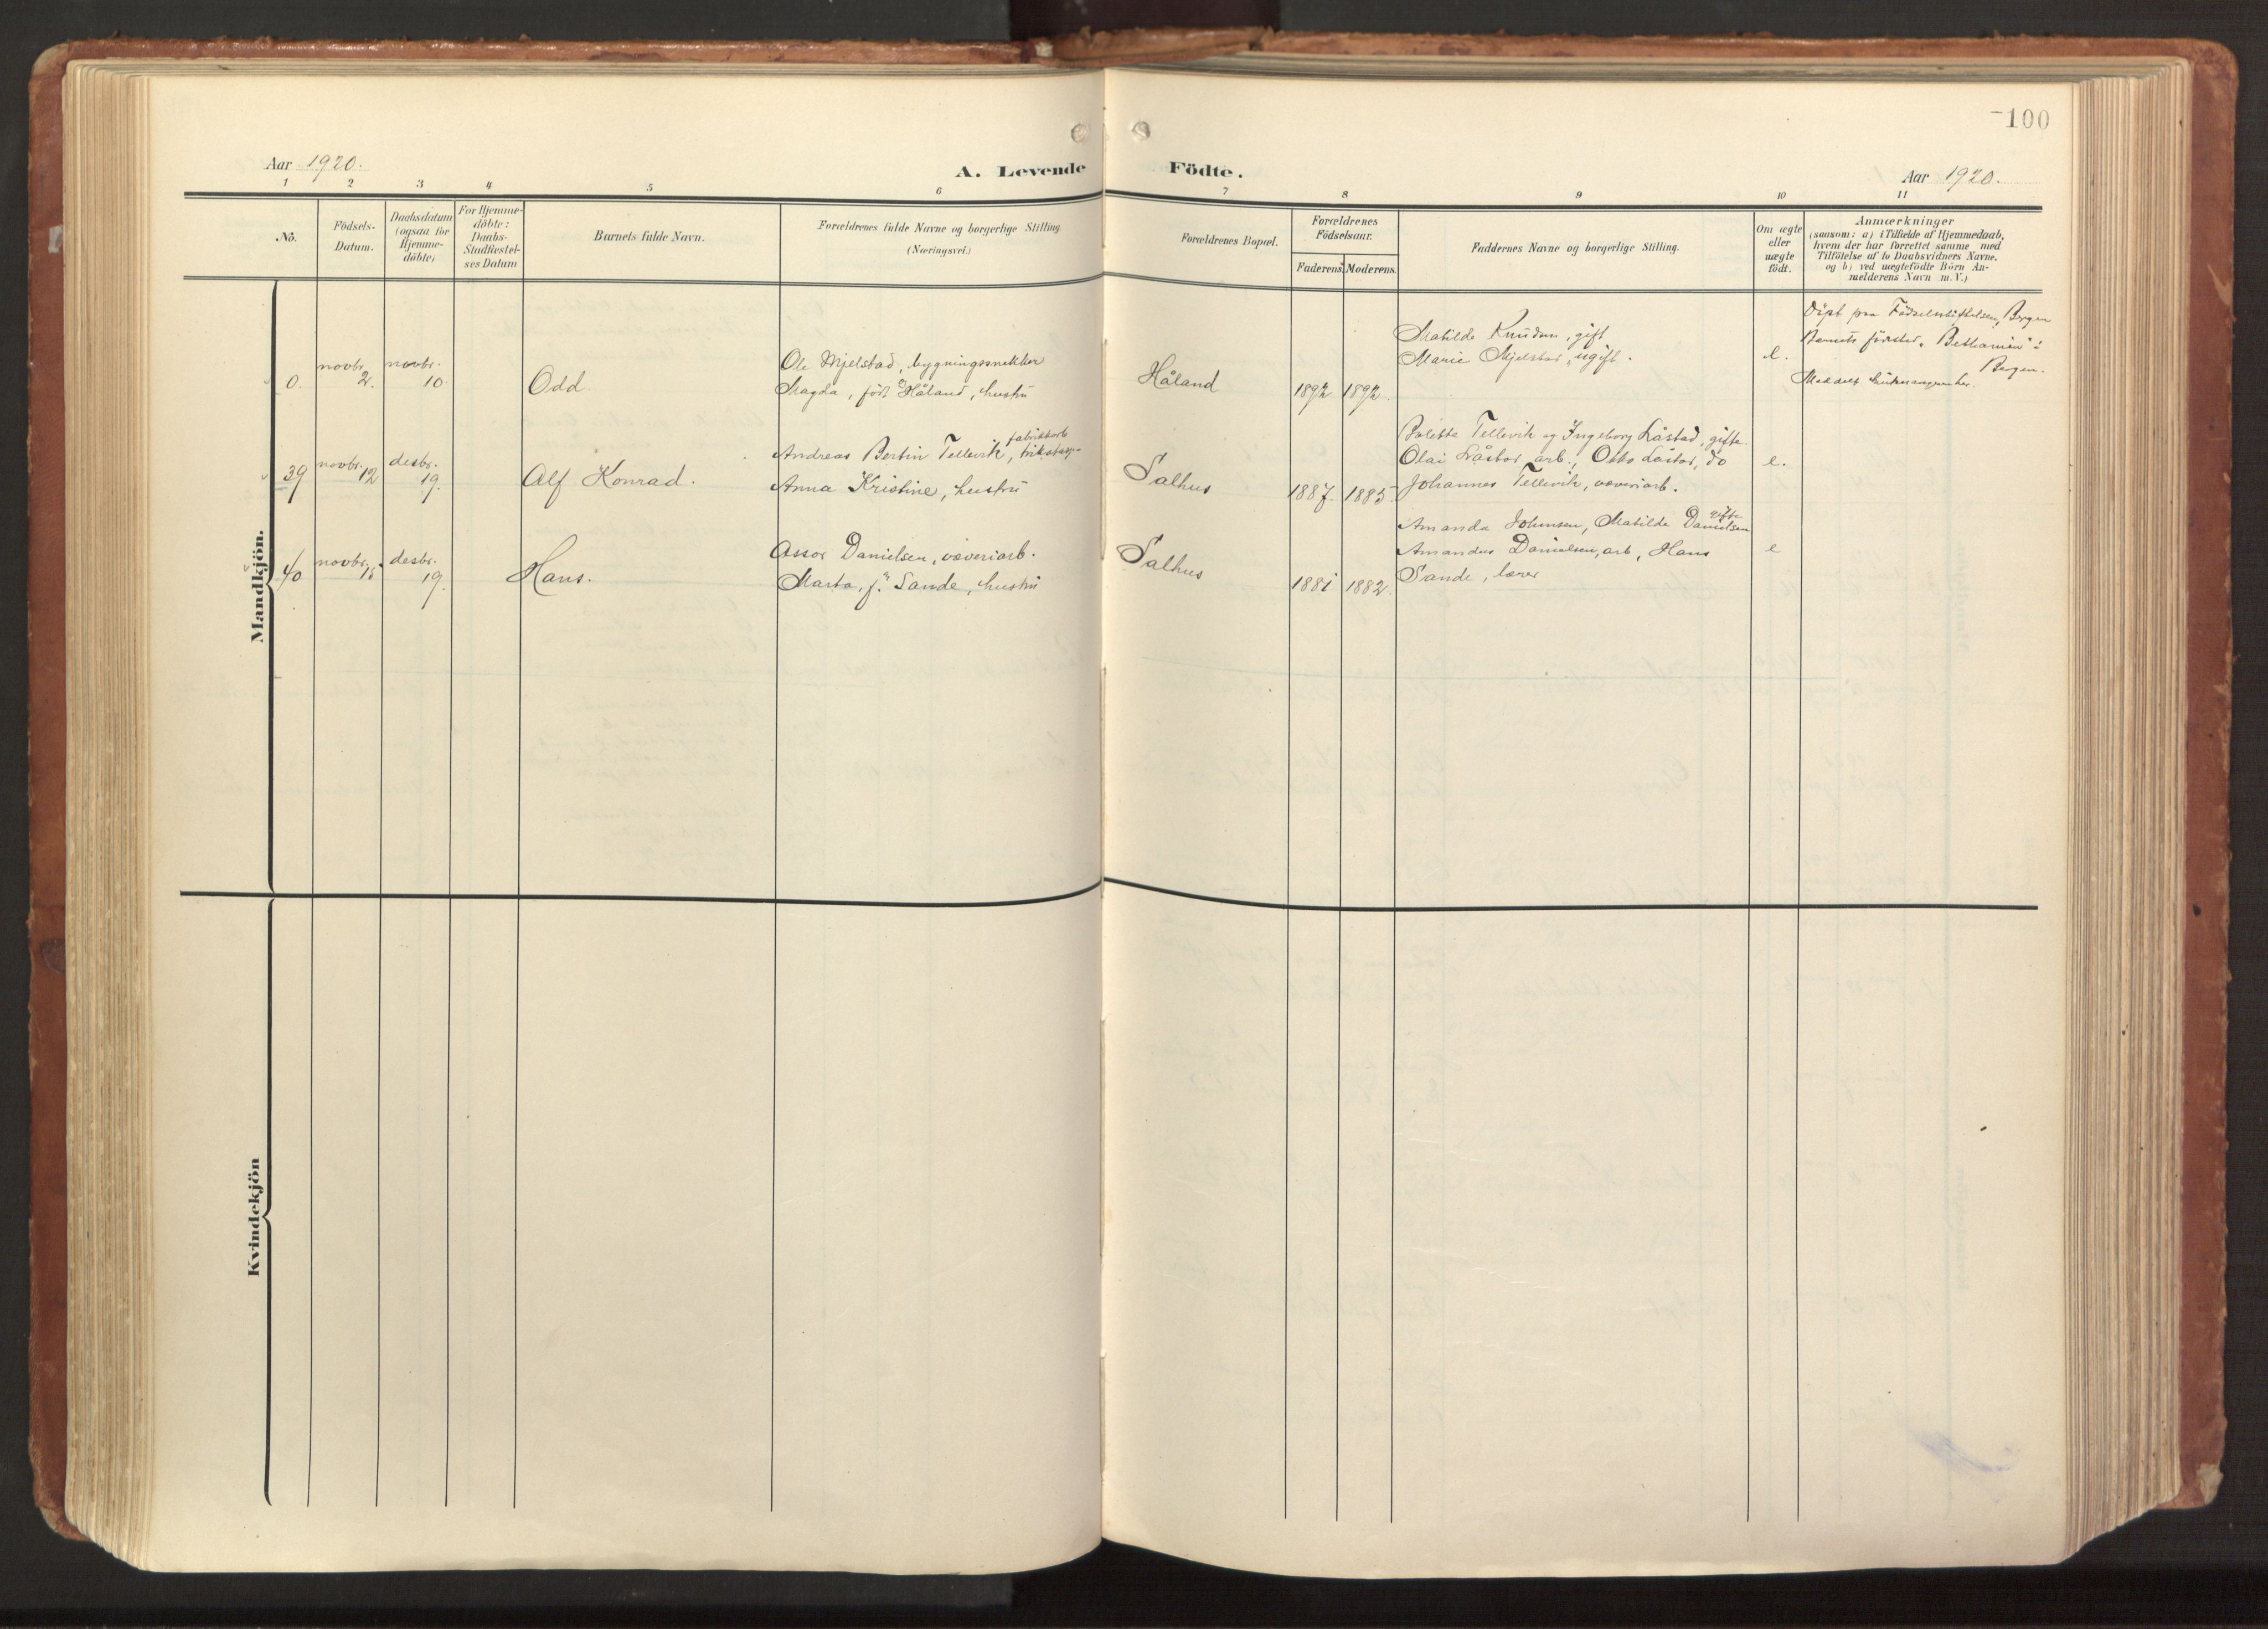 100
Aar 1920.
A. Levende Födte.
Aar 1920.
1 2 3 4 5 6 7 8 9 10 11
No.
Födsels-
Datum.
Daabsdatum
(ogsaa for
Hjemme-
döbte)
For Hjemme-
döbte:
Daabs-
Stadfæstel-
ses Datum
Barnets fulde Navn.
Forældrenes fulde Navne og borgerlige Stilling
(Næringsvei.)
Forældrenes Bopæl.
Forældrenes
Födselsaar.
Faderens. Moderens.
Faddernes Navne og borgerlige Stilling.
Om ægte
eller
uægte
födt.
Anmærkninger
(saasom: a) i Tilfælde af Hjemmedaab,
hvem der har forrettet samme med
Tilföielse af to Daabsvidners Navne.
og b) ved uægtefödte Börn An-
melderens Navn m. V.)
Mandkjön.
0. novbr. 2. novbr. 10. Odd.
Ole Mjelstad, bygningssnekker
Magda, födt Håland, hustru
Håland
1892 1892
Matilde Knudsen, gift
Marie Mjelstad, ugift.
e.
Döpt paa Födselsstiftelsen, Bergen
Bergen.
39 novbr. 12 desbr. 19. Alf Konrad.
fabrikkarb
Andreas Bertin Tellevik,
Anna Kristine, hustru
Salhus
1887. 1885
Tellevik og Ingeborg Låstad, gifte.
Olai Låstad arb., Otto Låstad, do
Johannes Tellevik, væveriarb.
e.
40 novbr. desbr. 19. Hans.
Assor Danielsen, væveriarb.
Marta, f. Sande, hustru
Salhus
1881 1882.
gifte
Amanda Johnsen, Matilde Danielsen
Amandus Danielsen, arb, Hans
Sande, lærer
e
Kvindekjön